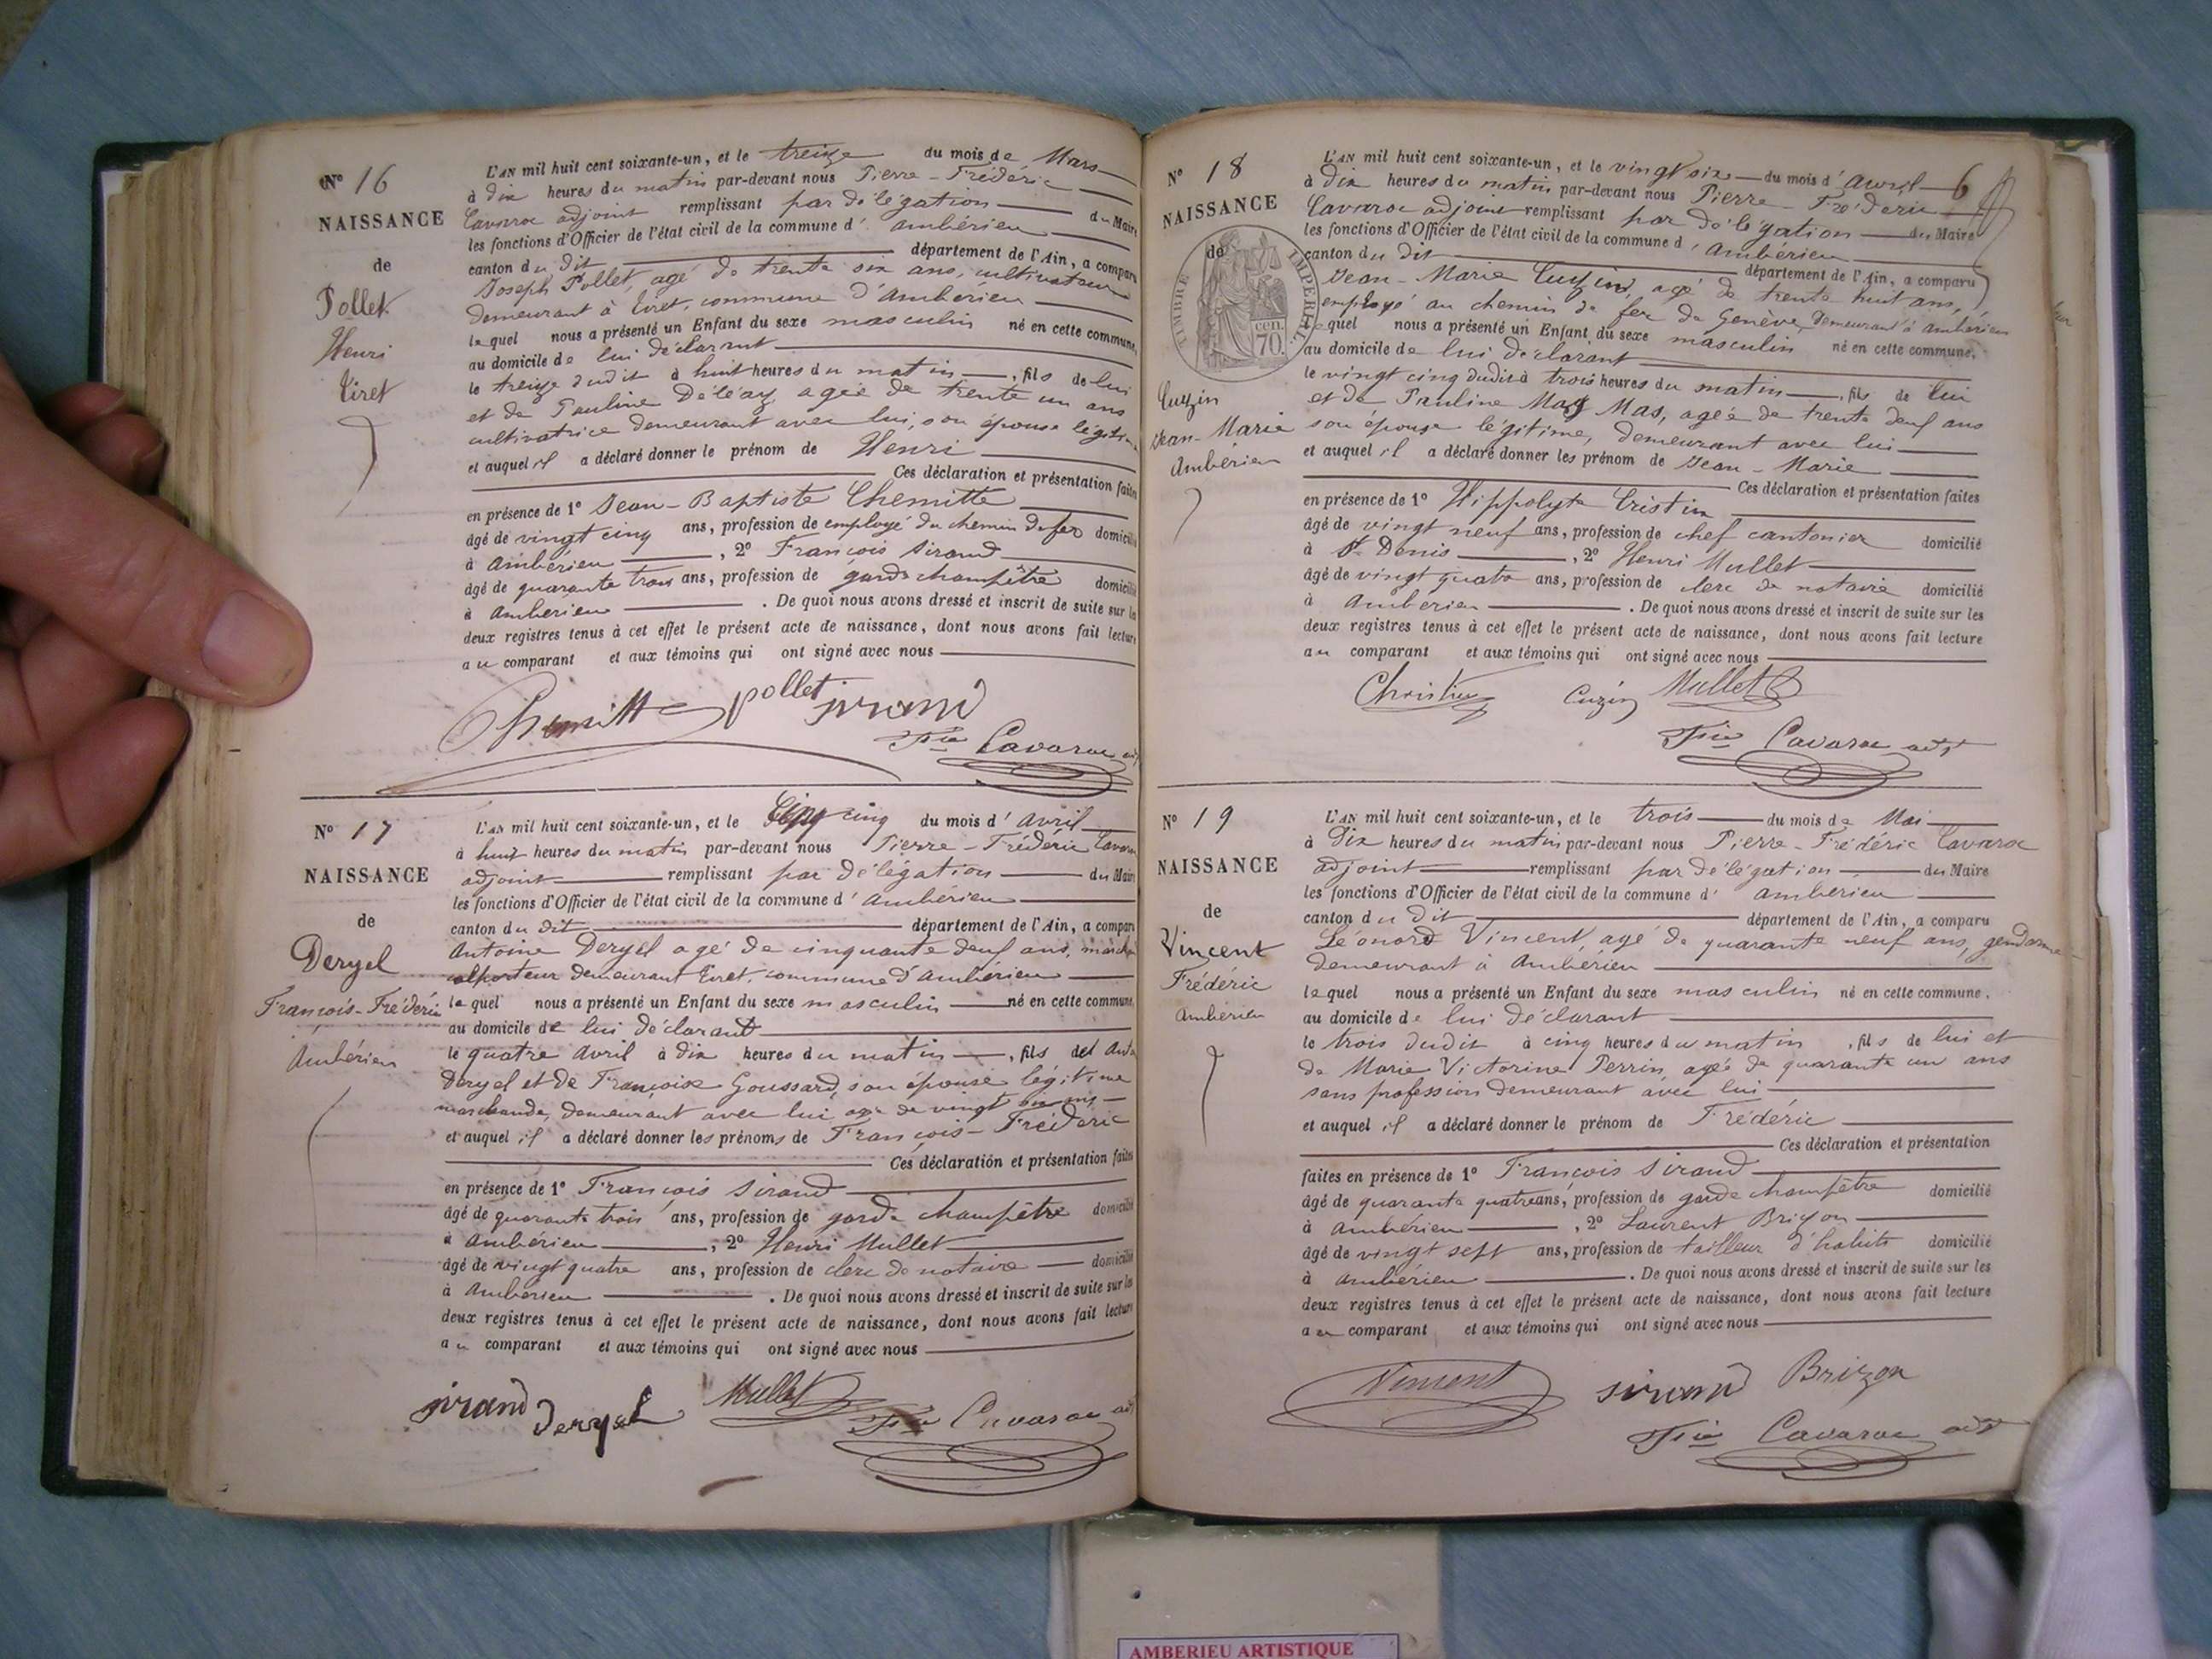 N° 16
NAISSANCE
de
Pollet
Henri
Tiret
L'AN mil huit cent soixante-un, et le treize du mois de Mars
à dix heures du matin par-devant nous Pierre-Frédéric
Cavaroc adjoint remplissant par délégation du Maire
les fonctions d'Officier de l'état civil de la commune d' Ambérieu
canton du dit département de l'Ain, a comparu
Joseph Pollet, agé de trente six ans, cultivateur
demeurant à Tiret, commune d'Ambérieu
lequel nous a présenté un Enfant du sexe masculin né en cette commune,
au domicile de lui déclarant
le treize dudit à huit heures du matin, fils de lui
et de Pauline Deléaz agée de trente un ans
cultivatrice demeurant avec lui, son épouse légitime
et auquel il a déclaré donner le prénom de Henri
Ces déclaration et présentation faites
en présence de 1° Jean-Baptiste Chemitte
âgé de vingt cinq ans, profession de employé du chemin de fer domicilié
à Ambérieu, 2° François Sirand
âgé de quarante trois ans, profession de garde champêtre domicilié
à Ambérieu. De quoi nous avons dressé et inscrit de suite sur les
deux registres tenus à cet effet le présent acte de naissance, dont nous avons fait lecture
au comparant et aux témoins qui ont signé avec nous
Chemitte pollet sirand
Fric Cavaroc adj
N° 17
NAISSANCE
de
Deryel
François-Frédéric
Ambérieu
L'AN mil huit cent soixante-un, et le cinq du mois d' Avril
à huit heures du matin par-devant nous Pierre-Frédéric Cavaroc
adjoint remplissant par délégation du Maire
les fonctions d'Officier de l'état civil de la commune d' Ambérieu
canton du dit département de l'Ain, a comparu
Antoine Deryel agé de cinquante deux ans, marchand
colporteur demeurant Tiret, commune d'Ambérieu
lequel nous a présenté un Enfant du sexe masculin né en cette commune,
au domicile de lui déclarant
le quatre Avril à dix heures du matin, fils de
Deryel et de Françoise Goussard, son épouse légitime
marchande, demeurant avec lui agée de vingt
et auquel il a déclaré donner les prénoms de François-Fréderic
Ces déclaration et présentation faites
en présence de 1° François Sirand
âgé de quarante trois ans, profession de garde champêtre domicilié
à Ambérieu, 2° Henri Mullet
âgé de vingt quatre ans, profession de clerc de notaire domicilié
à Ambérieu. De quoi nous avons dressé et inscrit de suite sur les
deux registres tenus à cet effet le présent acte de naissance, dont nous avons fait lecture
au comparant et aux témoins qui ont signé avec nous
sirand Deryel Mullet
Fric Cavaroc adj
N° 18
NAISSANCE
de
TIMBRE IMPERIAL
70 cen.
Cuzin
Jean-Marie
Ambérieu
L'AN mil huit cent soixante-un, et le vingt six du mois d' Avril 6
à dix heures du matin par-devant nous Pierre-Fréderic
Cavaroc adjoint remplissant par délégation du Maire
les fonctions d'Officier de l'état civil de la commune d' Ambérieu
canton du dit département de l'Ain, a comparu
Jean-Marie Cuzin, agé de trente huit ans,
employé au chemin de fer de Genève, demeurant à Ambérieu
lequel nous a présenté un Enfant du sexe masculin né en cette commune,
au domicile de lui déclarant
le vingt cinq dudit à trois heures du matin, fils de lui
et de Pauline Mas, agée de trente deux ans
son épouse légitime, demeurant avec lui
et auquel il a déclaré donner les prénom de Jean-Marie
Ces déclaration et présentation faites
en présence de 1° Hippolyte Cristin
âgé de vingt neuf ans, profession de chef cantonier domicilié
à St Denis, 2° Henri Mullet
âgé de vingt quatre ans, profession de clerc de notaire domicilié
à Ambérieu. De quoi nous avons dressé et inscrit de suite sur les
deux registres tenus à cet effet le présent acte de naissance, dont nous avons fait lecture
au comparant et aux témoins qui ont signé avec nous
Christin Cuzin Mullet
Fric Cavaroc adjt
N° 19
NAISSANCE
de
Vincent
Frédéric
Ambérieu
L'AN mil huit cent soixante-un, et le trois du mois de Mai
à dix heures du matin par-devant nous Pierre-Frédéric Cavaroc
adjoint remplissant par délégation du Maire
les fonctions d'Officier de l'état civil de la commune d' Ambérieu
canton du dit département de l'Ain, a comparu
Léonard Vincent, agé de quarante neuf ans, gendarme
demeurant à Ambérieu
lequel nous a présenté un Enfant du sexe masculin né en cette commune,
au domicile de lui déclarant
le trois dudit à cinq heures du matin, fils de lui et
de Marie Victorine Perrin agée de quarante un ans
sans profession demeurant avec lui
et auquel il a déclaré donner le prénom de Frédéric
Ces déclaration et présentation
faites en présence de 1° François Sirand
âgé de quarante quatre ans, profession de garde champêtre domicilié
à Ambérieu, 2° Laurent Brizon
âgé de vingt sept ans, profession de tailleur d'habits domicilié
à Ambérieu. De quoi nous avons dressé et inscrit de suite sur les
deux registres tenus à cet effet le présent acte de naissance, dont nous avons fait lecture
au comparant et aux témoins qui ont signé avec nous
Vincent sirand Brizon
Fric Cavaroc adjt
AMBERIEU ARTISTIQUE